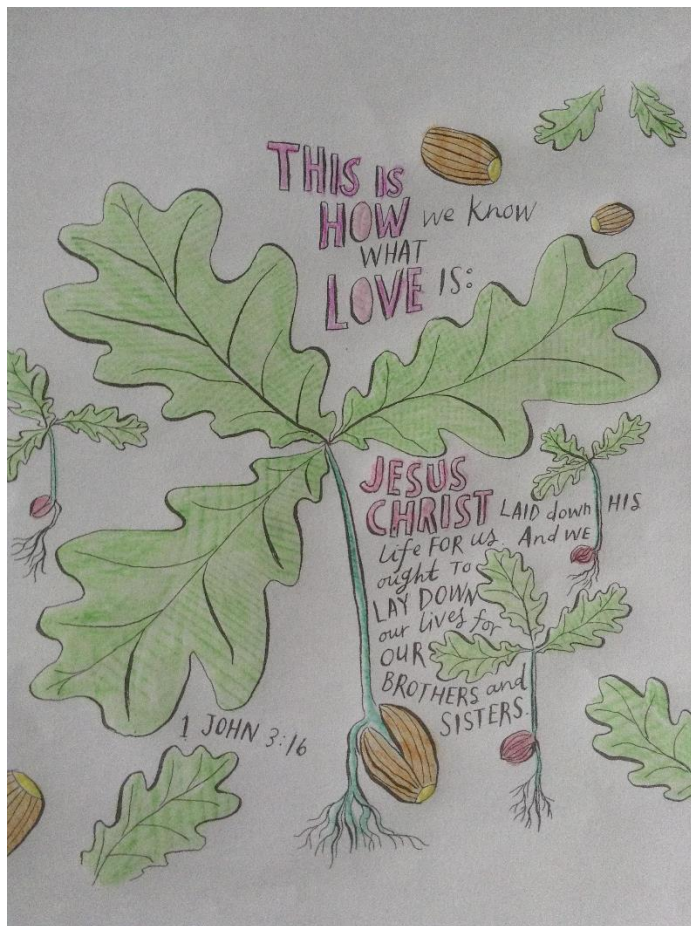 THIS IS
HOW we know
WHAT
LOVE IS:
JESUS
CHRIST LAID down HIS
life FOR us. And WE
ought TO
LAY DOWN
our lives for
OUR
BROTHERS and
SISTERS.
1 JOHN 3:16